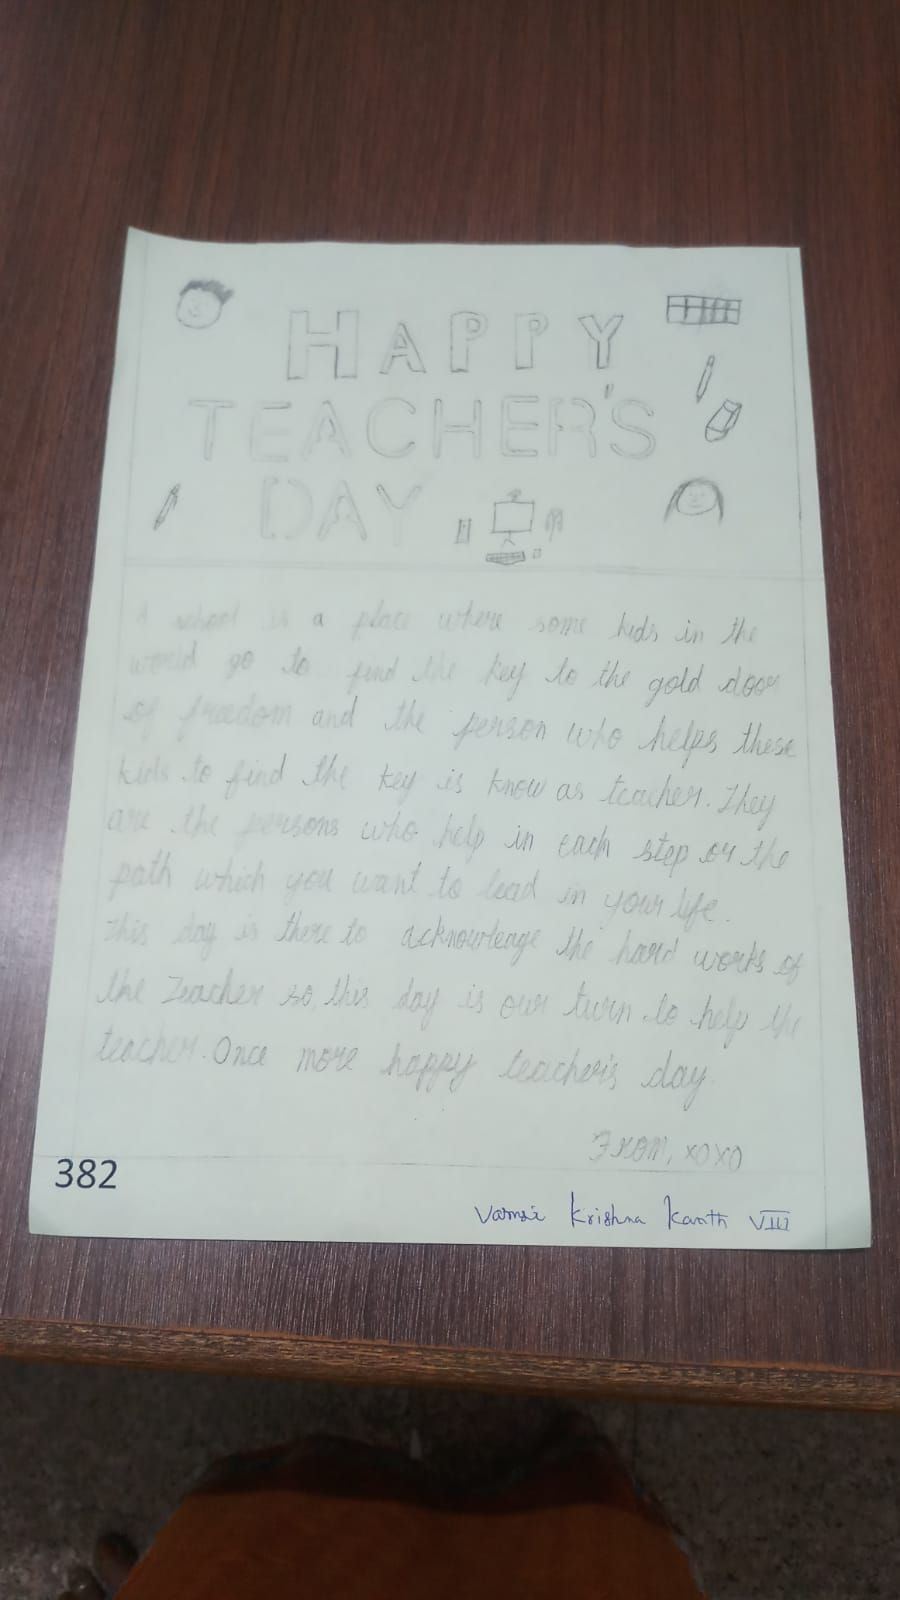 HAPPY
TEACHER'S
DAY
A school is a place where some kids in the
world go to find the key to the gold door
of freedom and the person who helps these
kids to find the key is know as teacher. They
are the persons who help in each step or the
path which you want to lead in your life.
This day is there to acknowleage the hard works of
the Teacher so, this day is our turn to help the
teacher. Once more happy teacher's day.
FROM, XOXO
382
Vamsi Krishna Kanth VIII